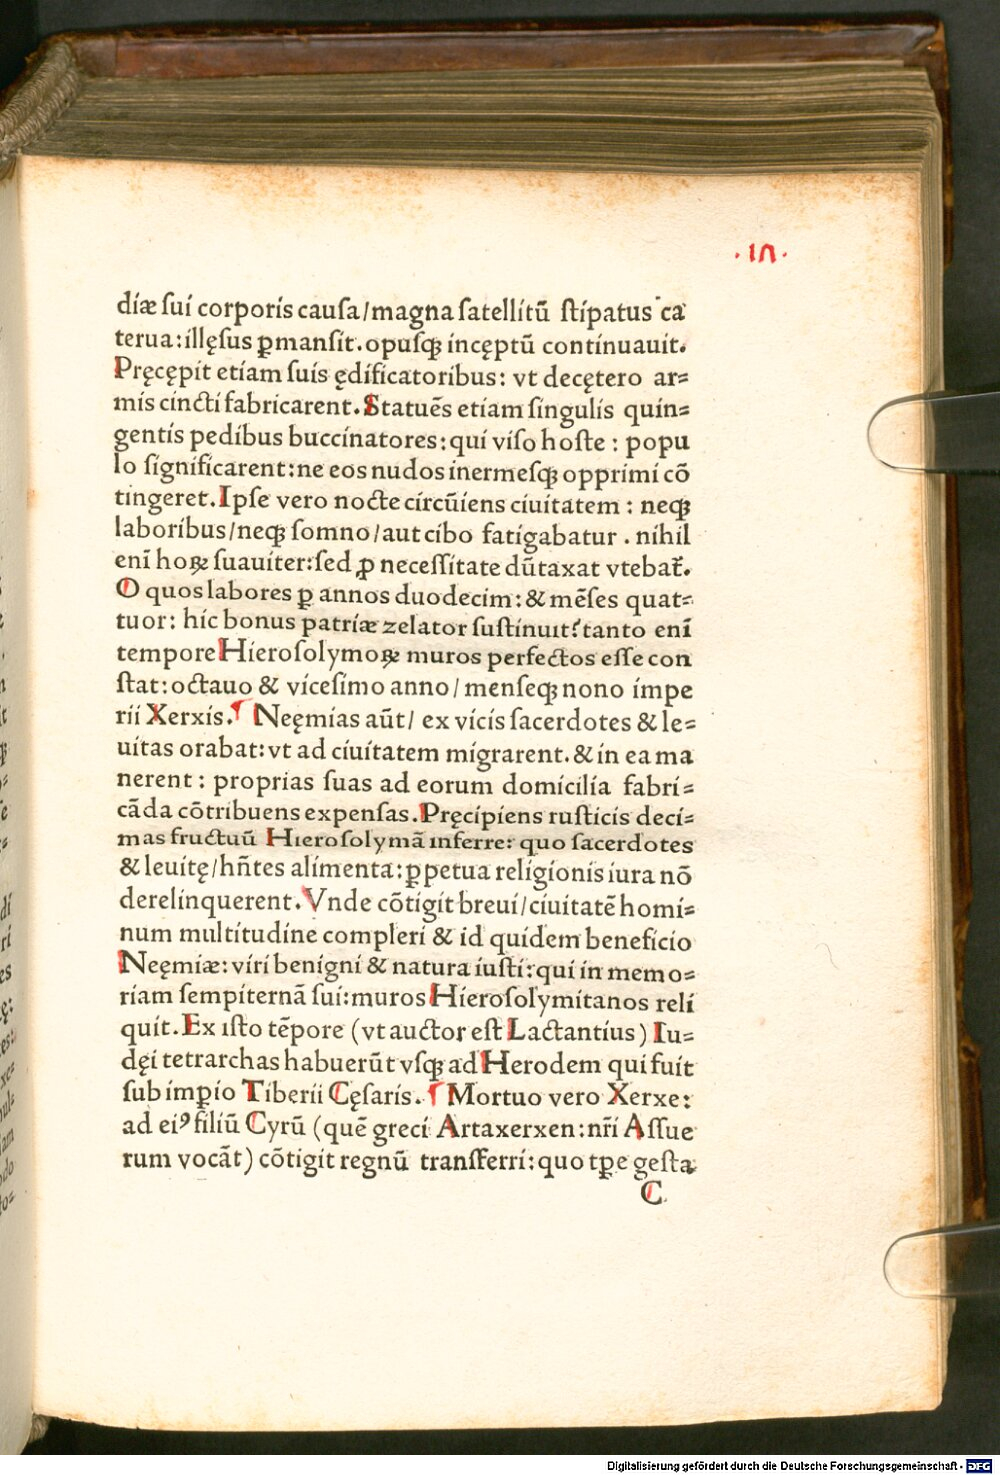 ·17·
diæ sui corporis causa/magna satellitū stipatus ca
terua:illęsus ꝑmansit.opusqꝫ incęptū continuauit.
Pręcępit etiam suis ędificatoribus: vt decętero ar⸗
mis cincti fabricarent.Statuēs etiam singulis quin⸗
gentis pedibus buccinatores:qui viso hoste : popu
lo significarent:ne eos nudos inermesqꝫ opprimi cō
tingeret.Ipse vero nocte circūiens ciuitatem : neqꝫ
laboribus/neqꝫ somno/aut cibo fatigabatur . nihil
enī hoꝝ suauiter:sed ꝓ necessitate dūtaxat vtebat᷑.
O quos labores ꝑ annos duodecim:& mēses quat⸗
tuor: hic bonus patriæ zelator sustinuit?tanto enī
tempore Hierosolymoꝝ muros perfectos esse con
stat:octauo & vicesimo anno/menseqꝫ nono impe
rii Xerxis.¶ Neęmias aūt/ ex vicis sacerdotes & le⸗
uitas orabat:vt ad ciuitatem migrarent.& in ea ma
nerent : proprias suas ad eorum domicilia fabri⸗
cāda cōtribuens expensas.Pręcipiens rusticis deci⸗
mas fructuū Hierosolymā inferre: quo sacerdotes
& leuitę/hñtes alimenta:ꝑpetua religionis iura nō
derelinquerent.Vnde cōtigit breui/ciuitatē homi⸗
num multitudine compleri & id quidem beneficio
Neęmiæ:viri benigni & natura iusti:qui in memo⸗
riam sempiternā sui:muros Hierosolymitanos reli
quit.Ex isto tēpore (vt auctor est Lactantius) Iu⸗
dęi tetrarchas habuerūt vsqꝫ ad Herodem qui fuit
sub imꝑio Tiberii Cęsaris.¶ Mortuo vero Xerxe:
ad eiꝰ filiū Cyrū (quē greci Artaxerxen:nr̄i Assue
rum vocāt) cōtigit regnū transferri:quo tꝑe gesta
C
Digitalisierung gefördert durch die Deutsche Forschungsgemeinschaft - DFG